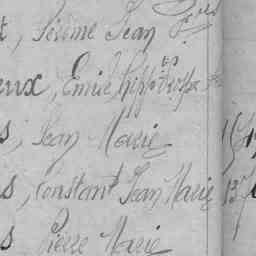 t, Jérôme Jean
eux, Emile
s, Jean Marie
s, Constant Jean Marie 13
s Pierre Marie